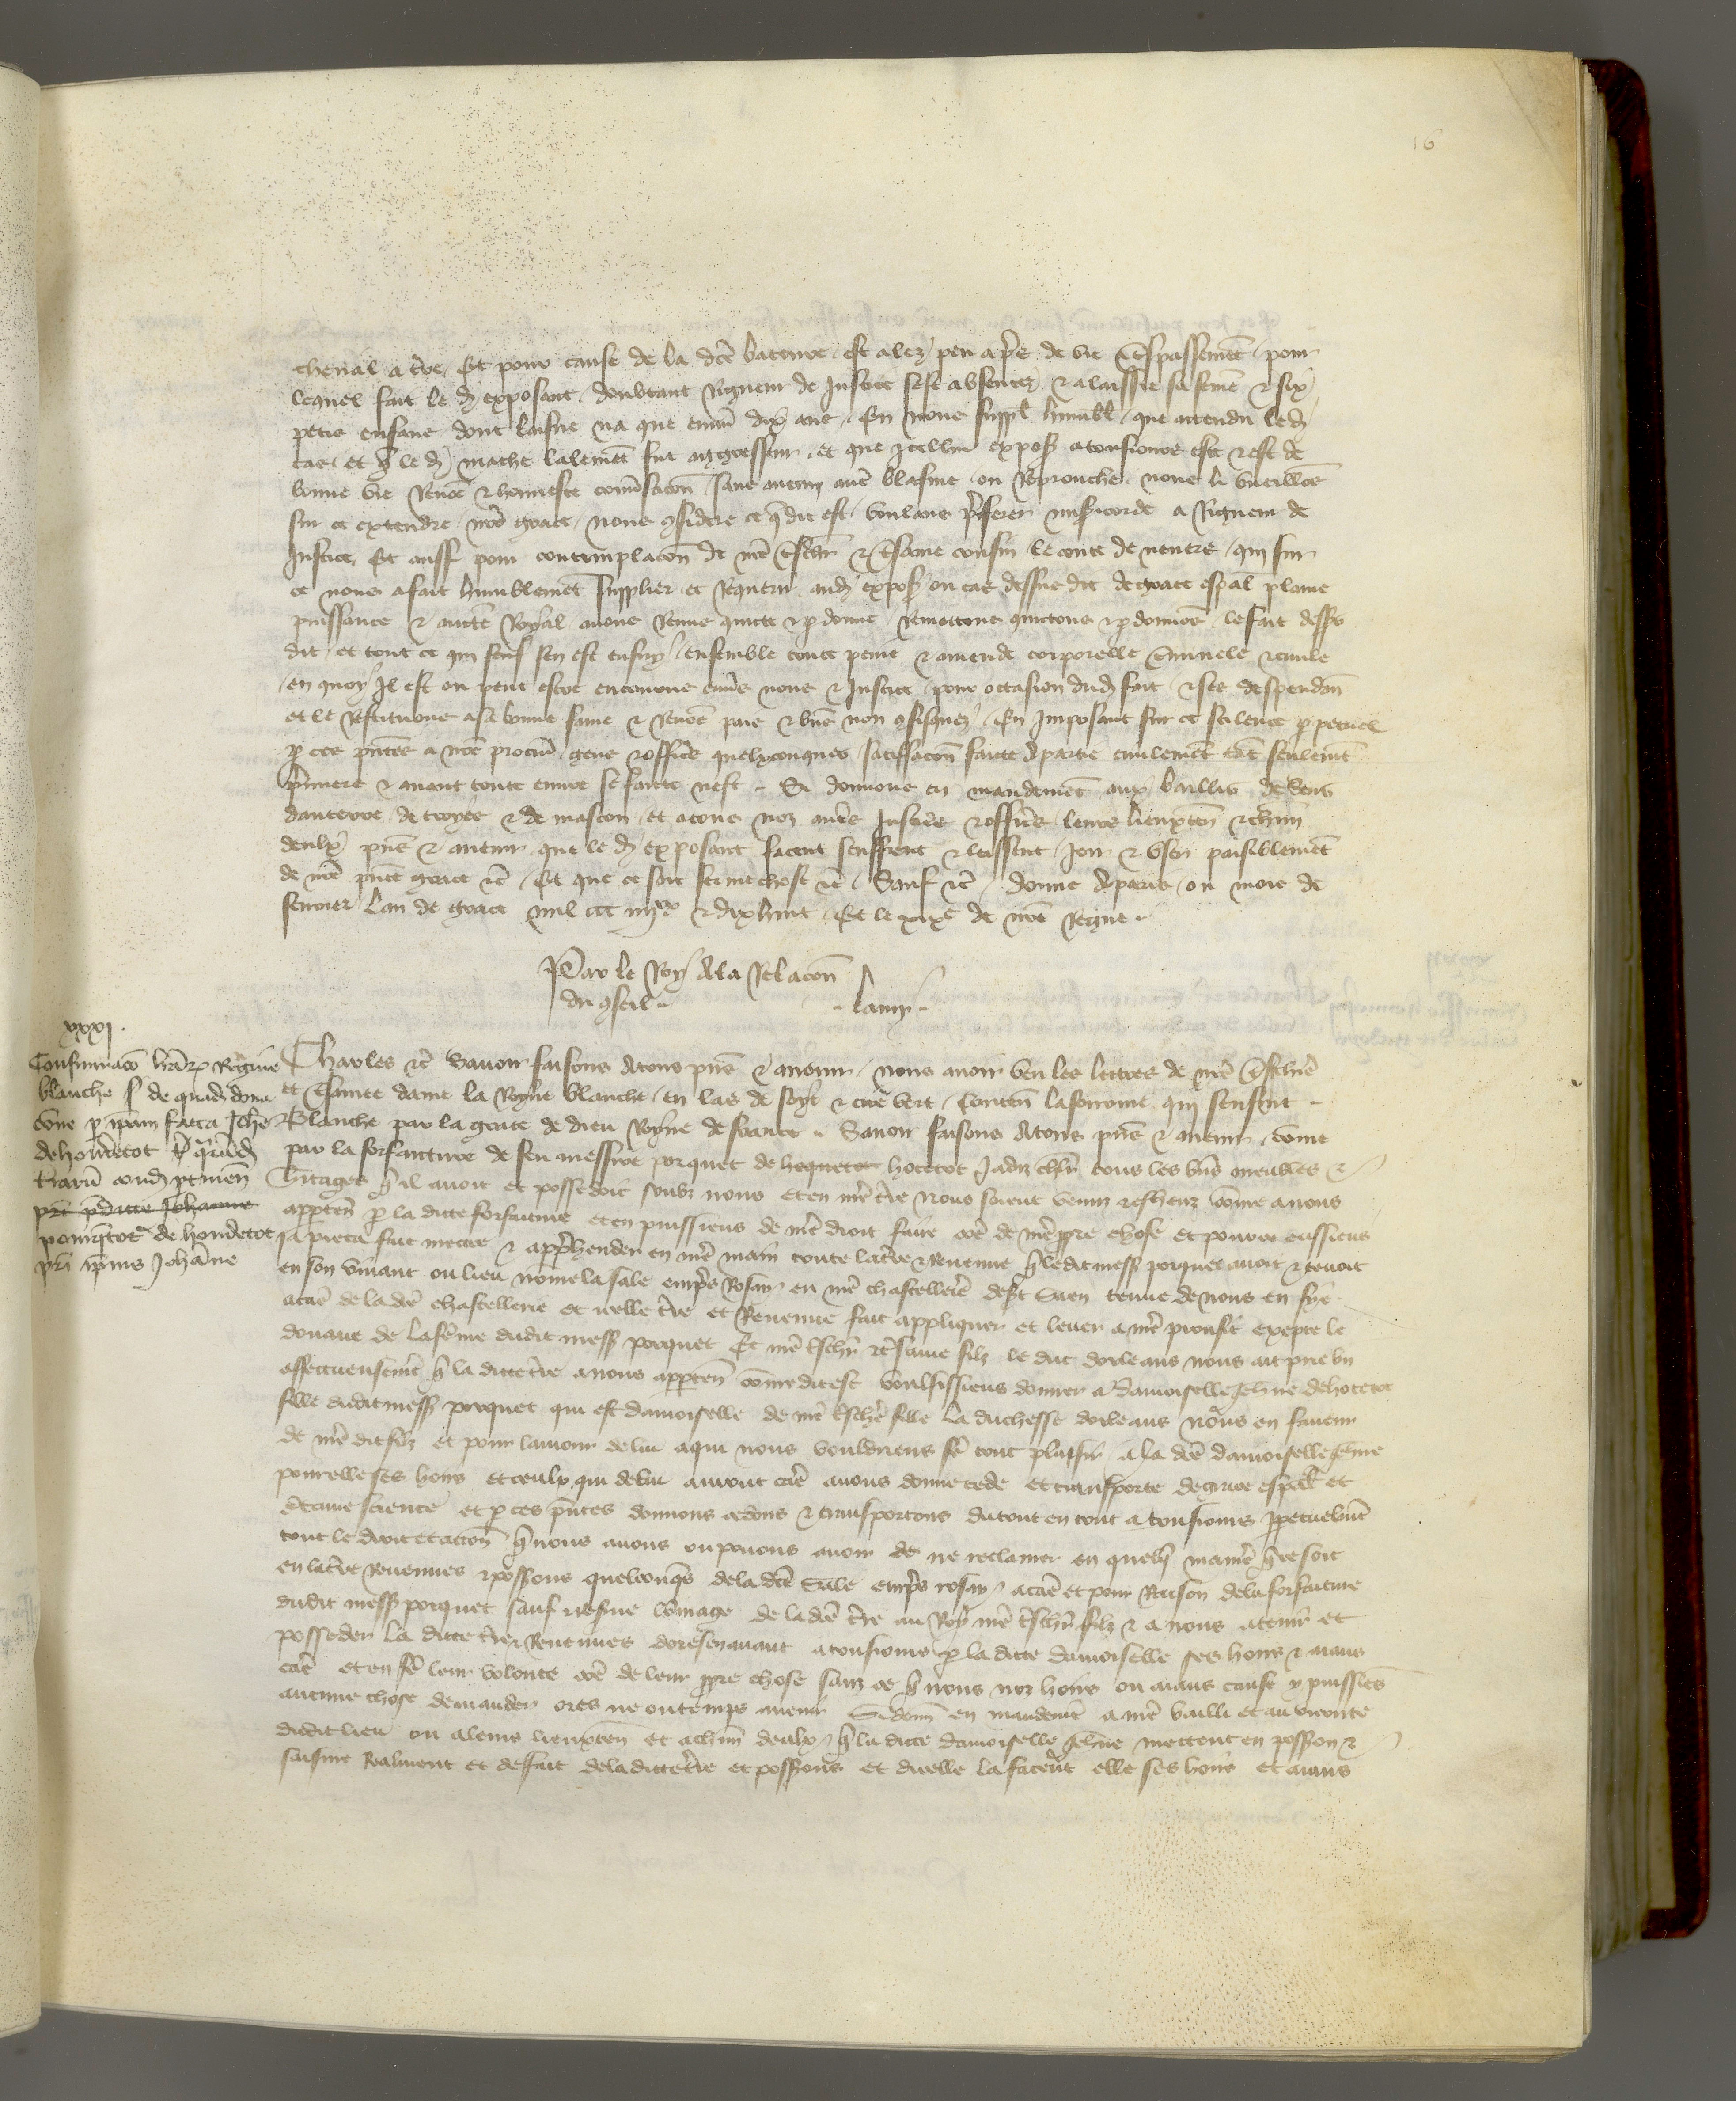 16
cheual a terre. Et pour cause de la dcẽ bateure est alez pou aprẽs de vie a trespassemẽt, pour
lequel fait le dit exposant doubtant Rigueur de Justice sest absentez, & a laissie sa femẽ & six
petis enfans dont laisne na que enuirõ dix ans, En nous suppl humblẽ que attendu le dit
cas, et que le dit mathe lalemẽt fut aggresseur, et que icellui expoſ a tousiours este & est de
bonne vie Renõe & honneste conuersacõn, sans aucun autre blasme ou Reprouche, nous li vueillõs
sur ce extendre nrẽ grace, nous cõsiderẽ ce que dit est, voulans preferer misericorde a Rigueur de
Justice, Et aussi pour contemplacõn de nrẽ treschr & tresame cousin le conte de neuers, qui sur
ce nous a fait humblemẽt supplier et Requerir, audit expoſ ou cas dessus dit de grace espal plaine
puissance & aucte Royal auons Remis quitte & pardonne, Remettons quittons & pardonnõs le fait dessus
dit, et tout ce qui sen est ensuy, ensemble toute peine & amende corporelle criminele & ciuile
en quoy il est ou peut estre encouru enuers nous & Justice, pour occasion dudit fait, & ses despendan
et le Restituons a sa bonne fame & Renõe pais & biens non cõfisquez, En imposant sur ce scilence perpetuel
par ces pñtes a nrẽ procur gene & officiers quelxconques, satisfacõn faicte a partie ciuilemẽt tãt seulemt
premiere & auant toute euure se faicte nest. Si donnons en mandemẽt aux bailliz de Sens
daucerre, de troyes & de mascon, et a tous noz autres Justiciers & officiers, leurs lieuxten & chũn
deulx pñs & auenir, que le dit exposant facent seuffrent & laissent Joir & vser paisiblemẽt
de nrẽ pñte grace etc. Et que ce soit ferme chose etc. Sauf etc. donne a paris, ou mois de
feurier Lan de grace mil ccc iiijxx & dixhuit. Et le xixe de nrẽ Regne.
Par le Roy A la Relacõn
du cõseil
Lamy
xxxj.
Confirmacõ lrãrum Regine
blanche de quad dona
cõne per ipam facta Johẽ
de houdetot terre quarud
terrarũ cond ptinen
~~pri predicte Johanne~~
porquetot de houdetot
pri ipius Johanne
Charles etc Sauoir faisons A tous pñs & auenir, nous auoir veu les lettres de nrẽ treschiere
et tresamee dame la Royne blanche, en las de soye & cire vert, contenn la fourme qui sensuit
Blanche par la grace de dieu Royne de france. Sauoir faisons A tous pñs & auenir, cõme
par la forfaiture de feu messire porquet de hoquetot hotetot Jadiz chlr, tous les biẽs meubles &
heritages quil auoit et possedoit soubz nous et en nrẽ terre nous soient venuz & escheuz cõme a nous
apprten par la dicte forfaiture et en puissiens de nrẽ droit faire cõe de nrẽ ppre chose et pour ce eussiens
ja pieca fait mettre & apprehender en nrẽ main toute la terre & Reuenue que le dit mess porquet auoit & tenoit
en son viuant ou lieu nome la sale empres Rosay en nrẽ chastellerie dest Saen tenue de nous en fye
a cãe de la dcẽ chastellerie et icelle terre et Reuenue fait appliquer et leuer a nrẽ prouffit excepte le
douaire de la fẽme dudit mess porquet Et nrẽ treschr & tresame filz le duc dorleans nous ait prie bn
affectueusemt que la dicte terre a nous apprten cõme dit est voulsissiens donner a damoiselle Jehne de hotetot
fille dudit mess porquet qui est damoiselle de nrẽ treschre fille la duchesse dorleans Nous en faueur
de nrẽ dit filz et pour lamour de lui a qui nous vouldriens fẽ tout plaisir a la dcẽ damoiselle Jehne
pour elle ses hoirs et ceulx qui de lui auront cãe auons donne cede et transporte de grace especial et
certaine science et par ces pñtes donnons cedons & transportons du tout en tout a tousiours perpetuelmt
tout le droit et accõn que nous auons ou pouons auoir de ne reclamer en quelque maniere que ce soit
en la terre Reuenues & possessions quelconqs de la dcẽ Sale empres rosay a cãe et pour Raison de la forfaiture
dudit mess porquet sauf & reserue lommage de la dcẽ terre au Roy nrẽ treschr filz & a nous a tenir et
posseder la dicte terre & Reuenues doresenauant a tousiours par la dicte damoiselle ses hoirs & aians
cãe et en fẽ leur volente cõe de leur ppre chose sanz ce que nous noz hoirs ou aians cause y puissiẽs
aucune chose demander ores ne ou temps auenir Si donn en mandemt a nrẽ bailli et au viconte
dudit lieu ou a leurs lieuxten et a chũn deulx que la dicte damoiselle Jehne mettent en possession &
saisine Realment et de fait de la dicte terre et possessions et dicelle la facent elle ses hoirs et aians